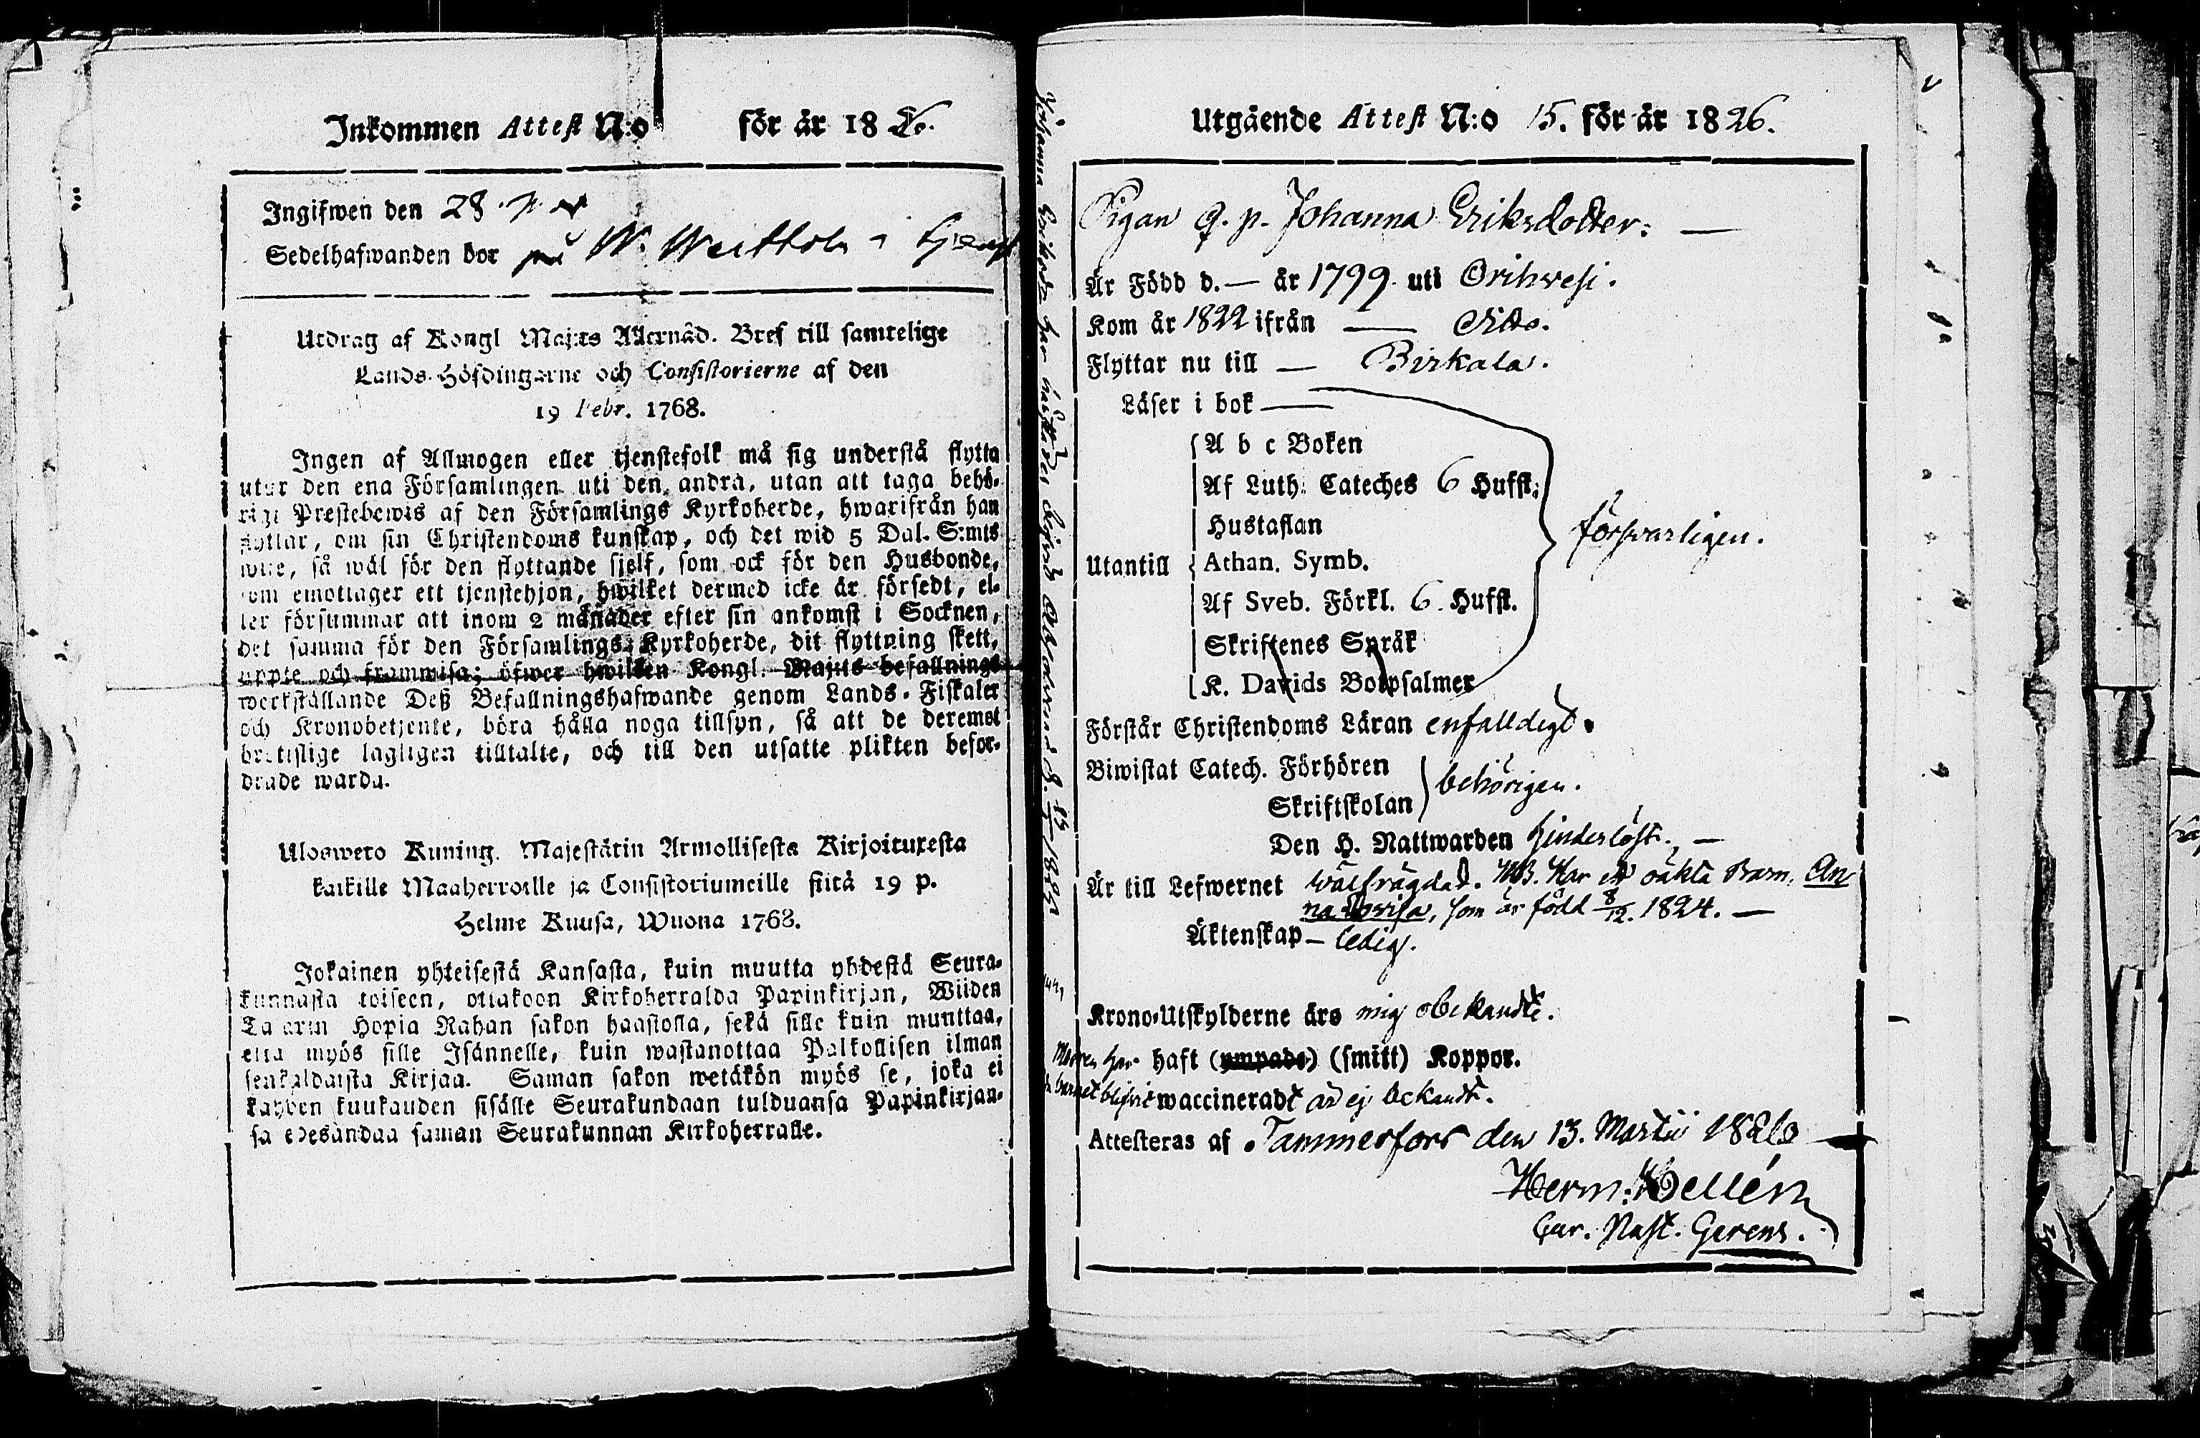 Inkommen Attest N:o för år 1826.
Ingifwen den 28
Sedelhafwanden bor på W.
Utdrag af Kongl Maj:ts Allernåd. Bref till samtelige
Lands-Höfdingarne och Consistorierne af den
19 Febr. 1768.
Ingen af Allmogen eller tjenstefolk må sig understå flytta
utur den ena Församlingen uti den andra, utan att taga behö-
rigt Prestebewis af den Församlings Kyrkoherde, hwarifrån han
flyttar, om sin Christendoms kunskap, och det wid 5 Dal. S:mts
wite, så wäl för den flyttande sjelf, som ock för den Husbonde,
som emottager ett tjenstehjon, hwilket dermed icke är försedt, el-
ler försummar att inom 2 månader efter sin ankomst i Socknen,
det samma för den Församlings Kyrkoherde, dit flyttning skett,
uppte och framwisa; öfwer hwilken Kongl. Maj:ts befallnings
werkställande Deß Befallningshafwande genom Lands-Fiskaler
och Kronobetjente, böra hålla noga tillsyn, så att de deremot
brottslige lagligen tilltalte, och till den utsatte plikten befor-
drade warda.
Ulosweto Kuning. Majestätin Armollisesta Kirjoituxesta
kaikille Maaherroille ja Consistoriumeille siitä 19 p.
Helme Kuusa, Wuona 1768.
Jokainen yhteisestä Kansasta, kuin muutta yhdestä Seura-
kunnasta toiseen, ottakoon Kirkoherralda Papinkirjan, Wiiden
Talarin Hopia Rahan sakon haastolla, sekä sille kuin munttaa,
että myös sille Isännelle, kuin wastanottaa Palkollisen ilman
senkaldaista Kirjaa. Saman sakon wetäkön myös se, joka ei
kahden kuukauden sisälle Seurakundaan tulduansa Papinkirjan-
sa edesändaa saman Seurakunnan Kirkoherralle.
Johanna Eriksdr har
Utgående Attest N:o 15. för år 1826.
Pigan q. p. Johanna Eriksdotter: —
Är Född d. — år 1799 uti Orihwesi.
Kom år 1822 ifrån — dito.
Flyttar nu till — Birkala.
Läser i bok —
A b c Boken
Af Luth. Cateches 6 Hufst.
Hustaflan
försvarligen.
Utantill Athan. Symb.
Af Sveb. Förkl. 6. Hufst.
Skriftenes Språk
K. Davids Botpsalmer
Förstår Christendoms Läran enfalldigt.
Biwistat Catech. Förhören
behörigen.
Skriftskolan
Den H. Nattwarden hinderlöst. —
Är till Lefwernet wälfrägdad. NB. Har et oäkta Barn, An
na Lovisa, som är född 8/12. 1824. —
Äktenskap — ledig.
Krono-Utskylderne äro mig obekandte.
Modren har haft (ympade) (smitt) Koppor.
barnet blifvit waccineradt är ej bekandt.
Attesteras af Tammerfors den 13. Martii 1826
Herm: Hellén
Cur. Past. Gerens.